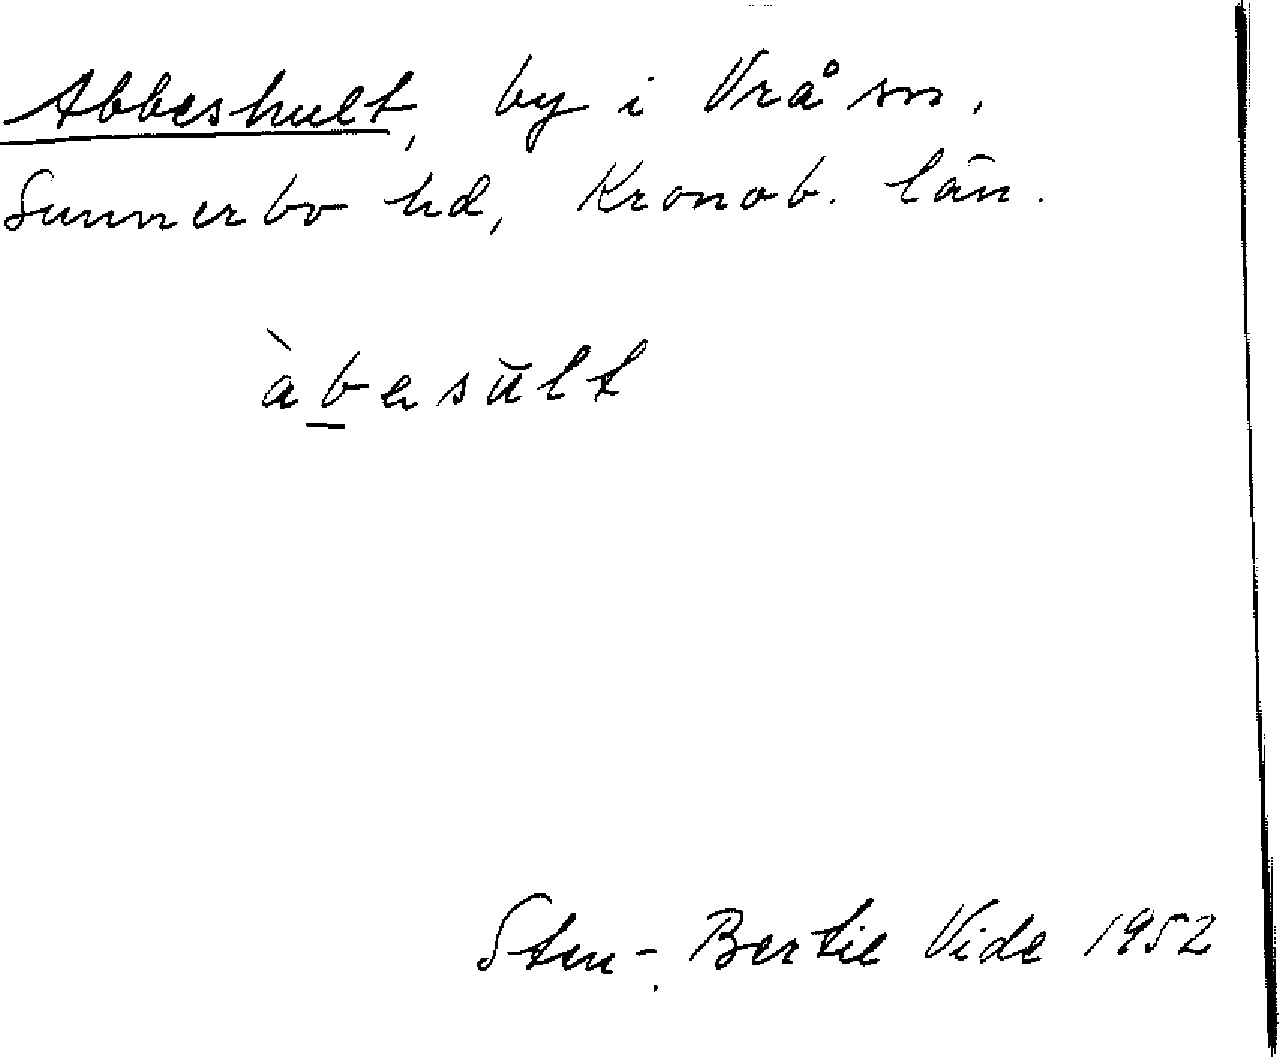 Abbeshult, by i Vrå sn,
Sunnerbo hd, Kronob. län.
àbesŭlt
Sten-Bertil Vide 1952